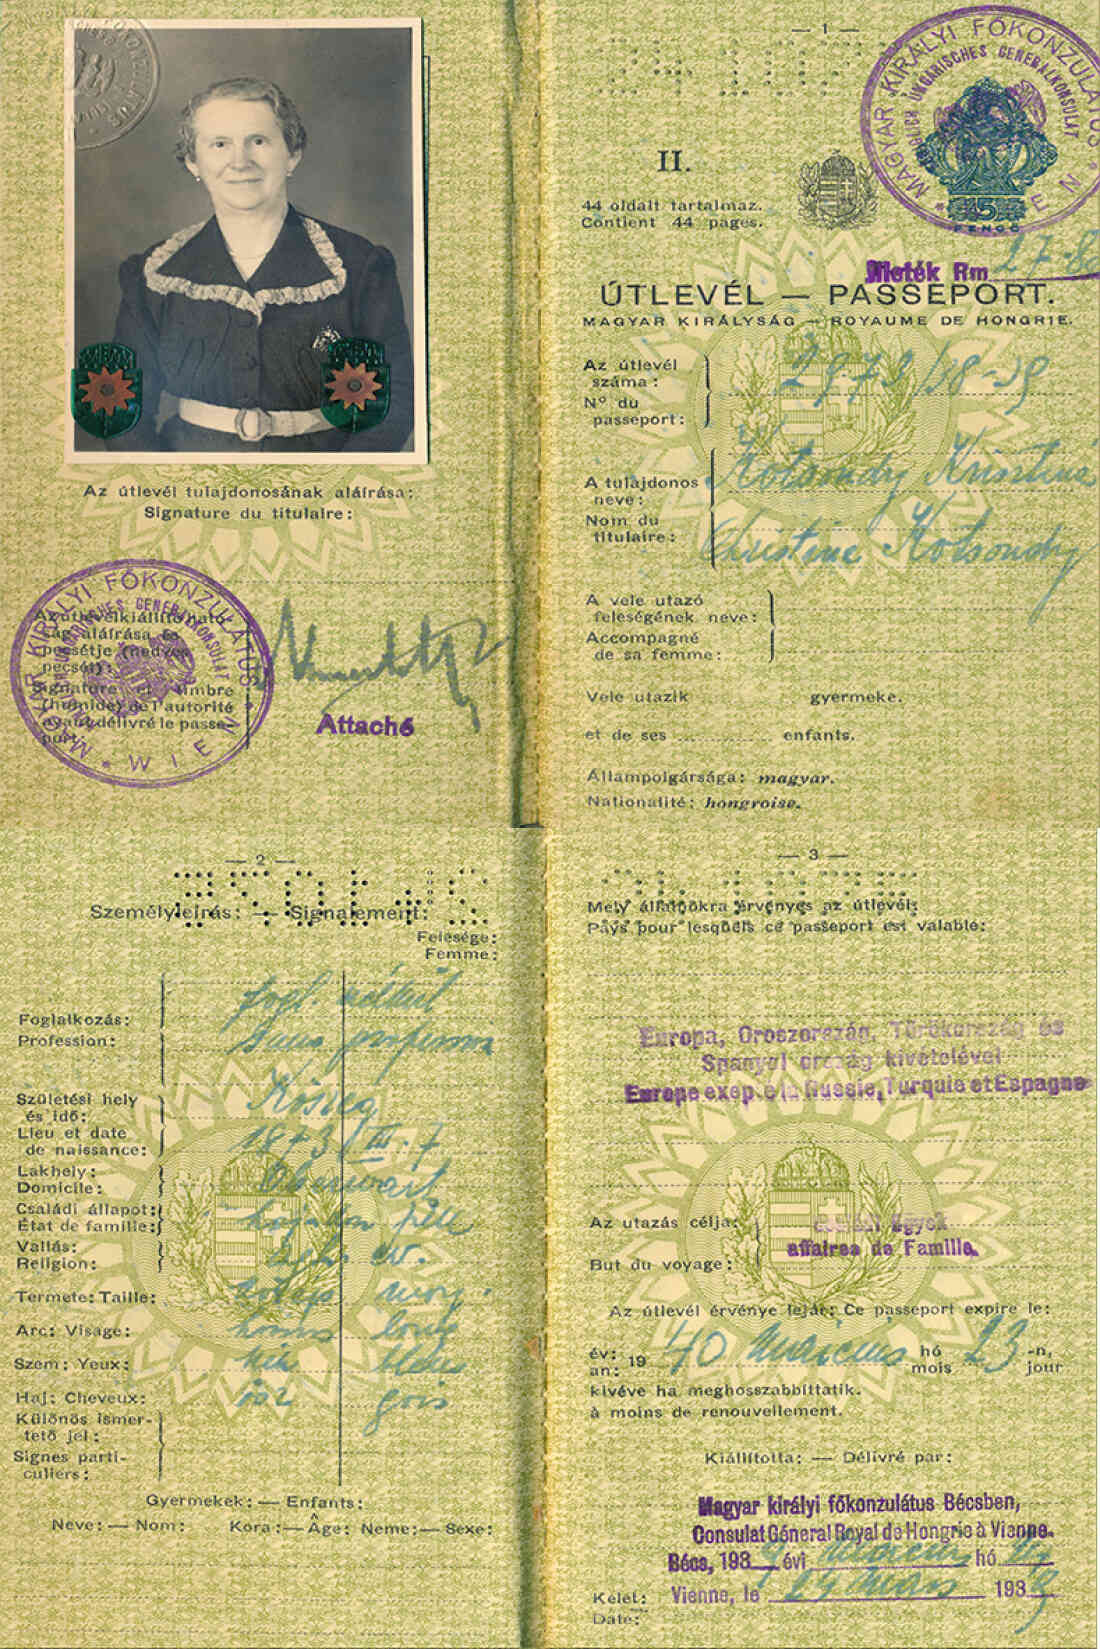 Az útlevél tulajdonosának aláírása:
Signature du titulaire:
MAGYAR KIRÁLYI FŐKONZULÁTUS
UNGARISCHES GENERALKONSULAT
WIEN
Az útlevélkiállító ható-
ság aláírása és
pecsétje (nedves
pecsét):
Signature et timbre
(humide) de l'autorité
ayant délivré le passe-
port:
Attaché
— 1 —
MAGYAR KIRÁLYI FŐKONZULÁTUS
KÖNIGLICH UNGARISCHES GENERALKONSULAT
WIEN
5
PENGŐ
II.
44 oldalt tartalmaz.
Contient 44 pages.
Illeték Rm
ÚTLEVÉL — PASSEPORT.
MAGYAR KIRÁLYSÁG — ROYAUME DE HONGRIE.
Az útlevél
száma:
Nº du
passeport:
2973/38-39
A tulajdonos
neve:
Nom du
titulaire:
Kotsondy Krisztina
Christine Kotsondy
A vele utazó
feleségének neve:
Accompagné
de sa femme:
Vele utazik gyermeke.
et de ses enfants.
Állampolgársága: magyar.
Nationalité: hongroise.
— 2 —
Személyleírás: — Signalement:
Felesége:
Femme:
Foglalkozás:
Profession:
fogl. nélkül
Sans profession
Születési hely
és idő:
Lieu et date
de naissance:
Kőszeg
1873 III. 7
Lakhely:
Domicile:
Oberwart
Családi állapot:
État de famille:
hajadon fille
Vallás:
Religion:
ev.
Termete: Taille:
Arc: Visage:
hosszú long
Szem: Yeux:
kék bleu
Haj: Cheveux:
ősz gris
Különös ismer-
tető jel:
Signes parti-
culiers:
Gyermekek: — Enfants:
Neve: — Nom: Kora: — Âge: Neme: — Sexe:
— 3 —
Mely államokra érvényes az útlevél:
Pays pour lesquels ce passeport est valable:
Europa, Oroszország, Törökország és
Spanyol ország kivételével
Europe exepté la Russie, Turquie et Espagne
Az utazás célja:
But du voyage:
családi ügyek
affaires de Famille.
Az útlevél érvénye lejár: Ce passeport expire le:
év: an: 1940 Március hó mois 23 -n, jour
kivéve ha meghosszabbíttatik.
à moins de renouvellement.
Kiállította: — Délivré par:
Magyar királyi főkonzulátus Bécsben,
Consulat Géneral Royal de Hongrie à Vienne.
Bécs, 1939 évi március hó 24
Kelet:
Date:
Vienne, le 24 Mars 1939